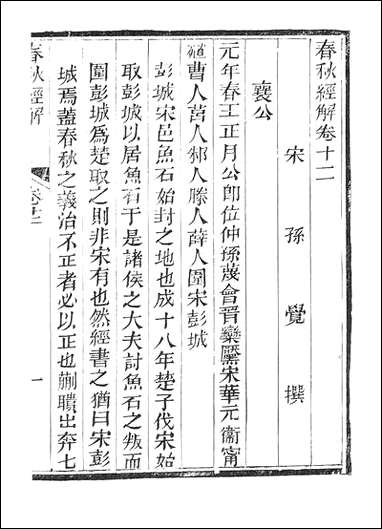 春秋經解卷十二
宋 孫 覺 撰
襄公
元年春王正月公即位仲孫蔑會晉欒黶宋華元衞甯
殖曹人莒人邾人滕人薛人圍宋彭城
彭城宋邑魚石始封之地也成十八年楚子伐宋始
取彭城以居魚石于是諸侯之大夫討魚石之叛而
圍彭城爲楚取之則非宋有也然經書之猶曰宋彭
城焉蓋春秋之義治不正者必以正也蒯聵出奔七
春秋經解
卷十二
一